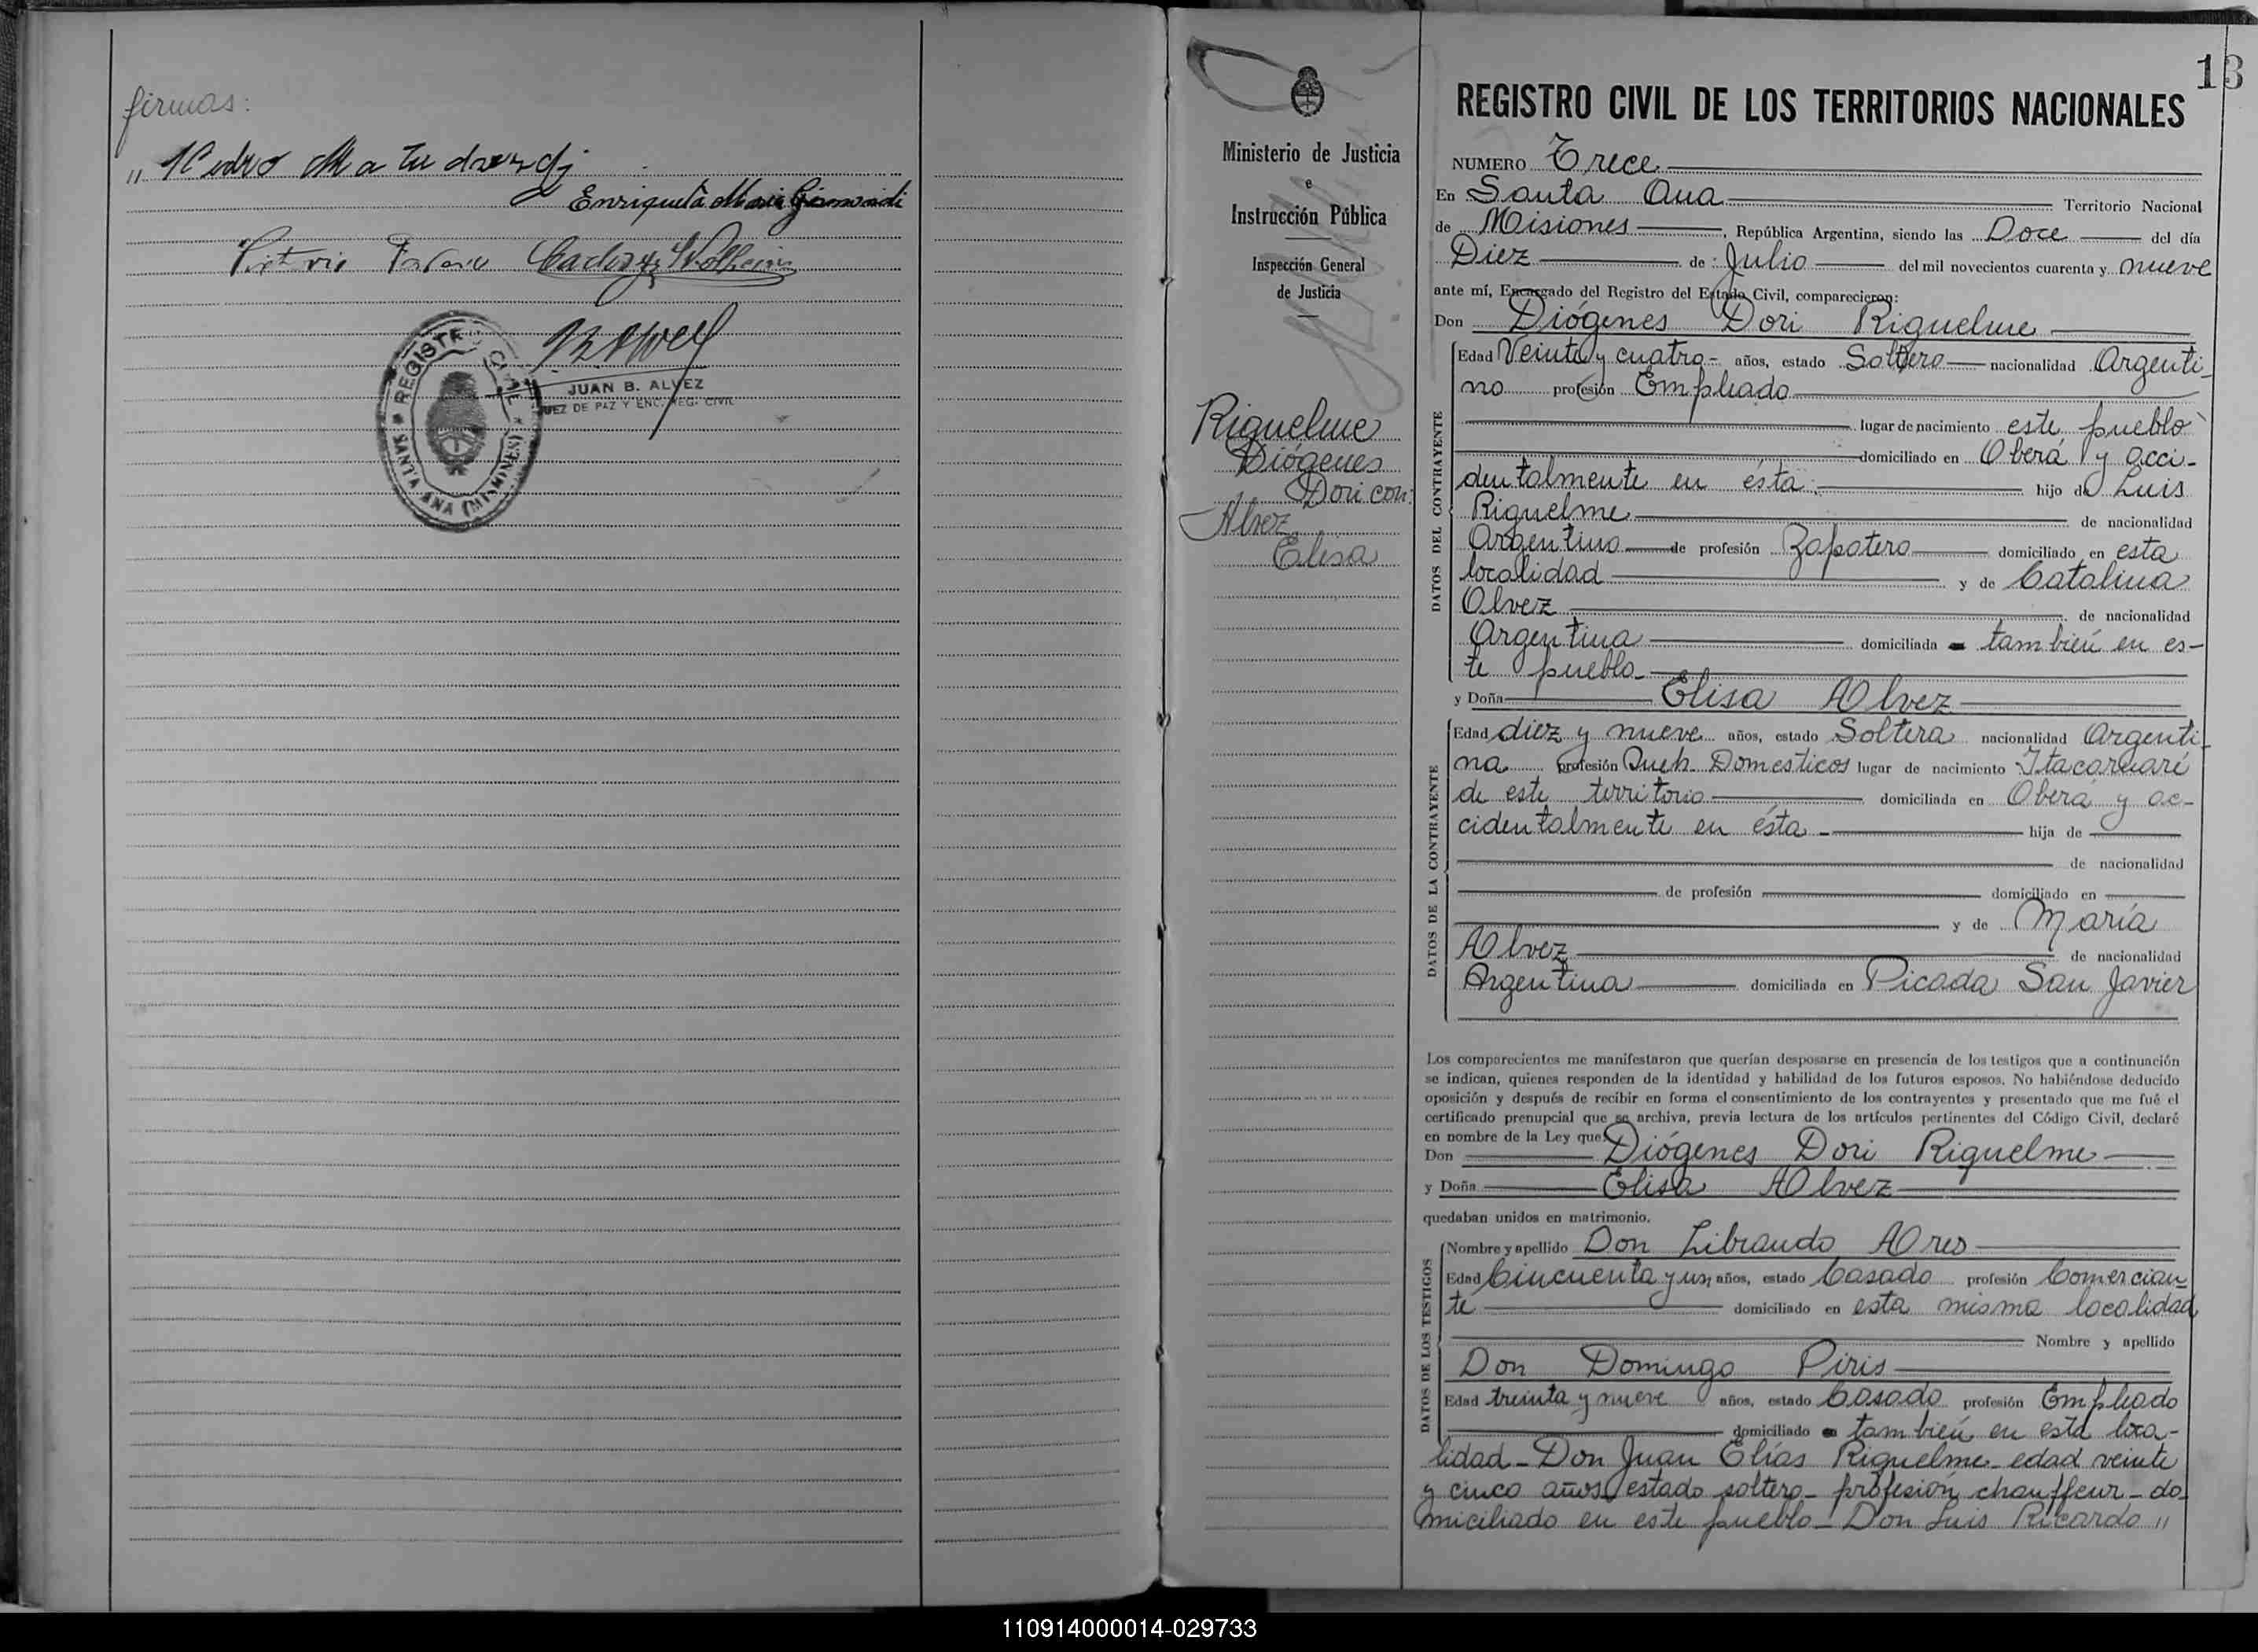 firmas:
" Pedro Matudaendj
Enriqueta Maria
REGISTRO CIVIL
SANTA ANA (MISIONES)
JUAN B. ALVEZ
JUEZ DE PAZ Y ENC. REG. CIVIL
13
Ministerio de Justicia
e
Instrucción Pública
Inspección General
de Justicia
Riquelme
Diógenes
Dori con:
Alvez
Elisa
REGISTRO CIVIL DE LOS TERRITORIOS NACIONALES
NUMERO Trece
En Santa Ana Territorio Nacional
de Misiones, República Argentina, siendo las Doce del día
Diez de Julio del mil novecientos cuarenta y nueve
ante mí, Encargado del Registro del Estado Civil, comparecieron:
Don Diógenes Dori Riquelme
DATOS DEL CONTRAYENTE
Edad Veinte y cuatro- años, estado Soltero nacionalidad Argenti-
no profesión Empleado
lugar de nacimiento este pueblo
domiciliado en Oberá y acci-
dentalmente en ésta hijo de Luis
Riquelme de nacionalidad
Argentino de profesión Zapatero domiciliado en esta
localidad y de Catalina
Alvez de nacionalidad
Argentina domiciliada también en es-
te pueblo-
y Doña Elisa Alvez
DATOS DE LA CONTRAYENTE
Edad diez y nueve años, estado Soltera nacionalidad Argenti-
na profesión Queh. Domesticos lugar de nacimiento Itacaruaré
de este territorio domiciliada en Oberá y ac-
cidentalmente en ésta - hija de
de nacionalidad
de profesión domiciliado en
y de María
Alvez de nacionalidad
Argentina domiciliada en Picada San Javier
Los comparecientes me manifestaron que querían desposarse en presencia de los testigos que a continuación
se indican, quienes responden de la identidad y habilidad de los futuros esposos. No habiéndose deducido
oposición y después de recibir en forma el consentimiento de los contrayentes y presentado que me fué el
certificado prenupcial que se archiva, previa lectura de los artículos pertinentes del Código Civil, declaré
en nombre de la Ley que:
Don Diógenes Dori Riquelme
y Doña Elisa Alvez
quedaban unidos en matrimonio.
DATOS DE LOS TESTIGOS
Nombre y apellido Don Librando Ares
Edad Cincuenta y un años, estado Casado profesión Comercian-
te domiciliado en esta misma localidad
Nombre y apellido
Don Domingo Piris
Edad treinta y nueve años, estado Casado profesión Empleado
domiciliado también en esta loca-
lidad - Don Juan Elías Riquelme - edad veinte
y cinco años, estado soltero - profesión chauffeur - do-
miciliado en este pueblo - Don Luis Ricardo "
110914000014-029733